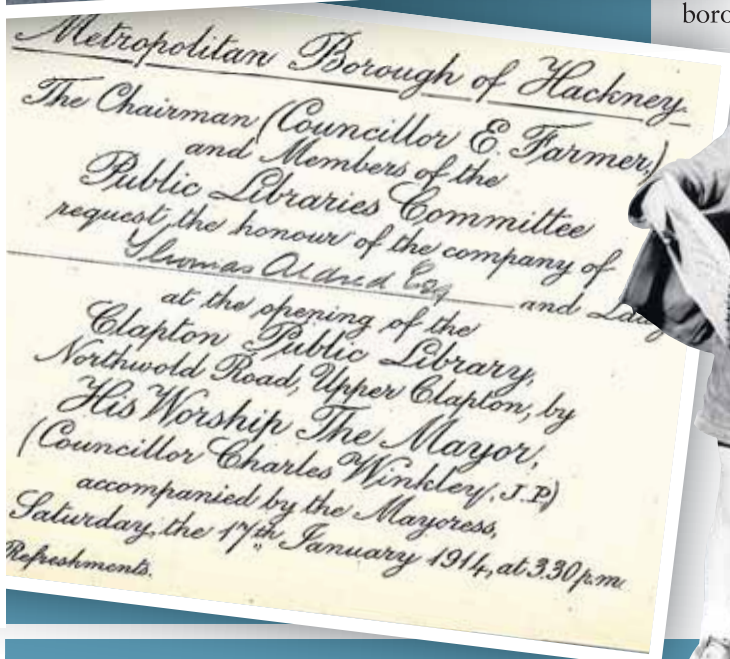 boro
Metropolitan Borough of Hackney.
The Chairman (Councillor E. Farmer,)
and Members of the
Public Libraries Committee
request the honour of the company of
Thomas Aldred Esq and Lady
at the opening of the
Clapton Public Library,
Northwold Road, Upper Clapton, by
His Worship The Mayor,
(Councillor Charles Winkley, J.P.)
accompanied by the Mayoress,
Saturday, the 17th January 1914, at 3.30 p.m.
Refreshments.